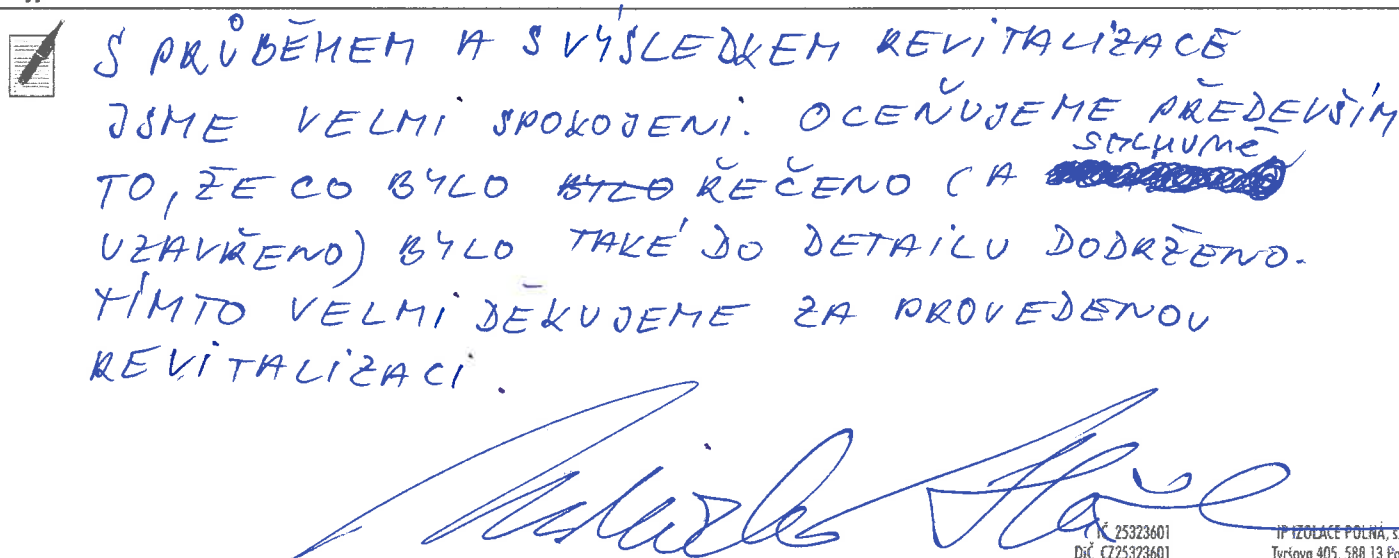 S PRŮBĚHEM A S VÝSLEDKEM REVITALIZACE
JSME VELMI SPOKOJENI. OCEŇUJEME PŘEDEVŠÍM
SMLUVNĚ
TO, ŽE CO BYLO BYLO ŘEČENO (A
UZAVŘENO) BYLO TAKÉ DO DETAILU DODRŽENO.
TÍMTO VELMI DĚKUJEME ZA PROVEDENOU
REVITALIZACI.
IČ 25323601
DIČ CZ25323601
IP IZOLACE POLNÁ, s
Tyršova 405, 588 13 Po